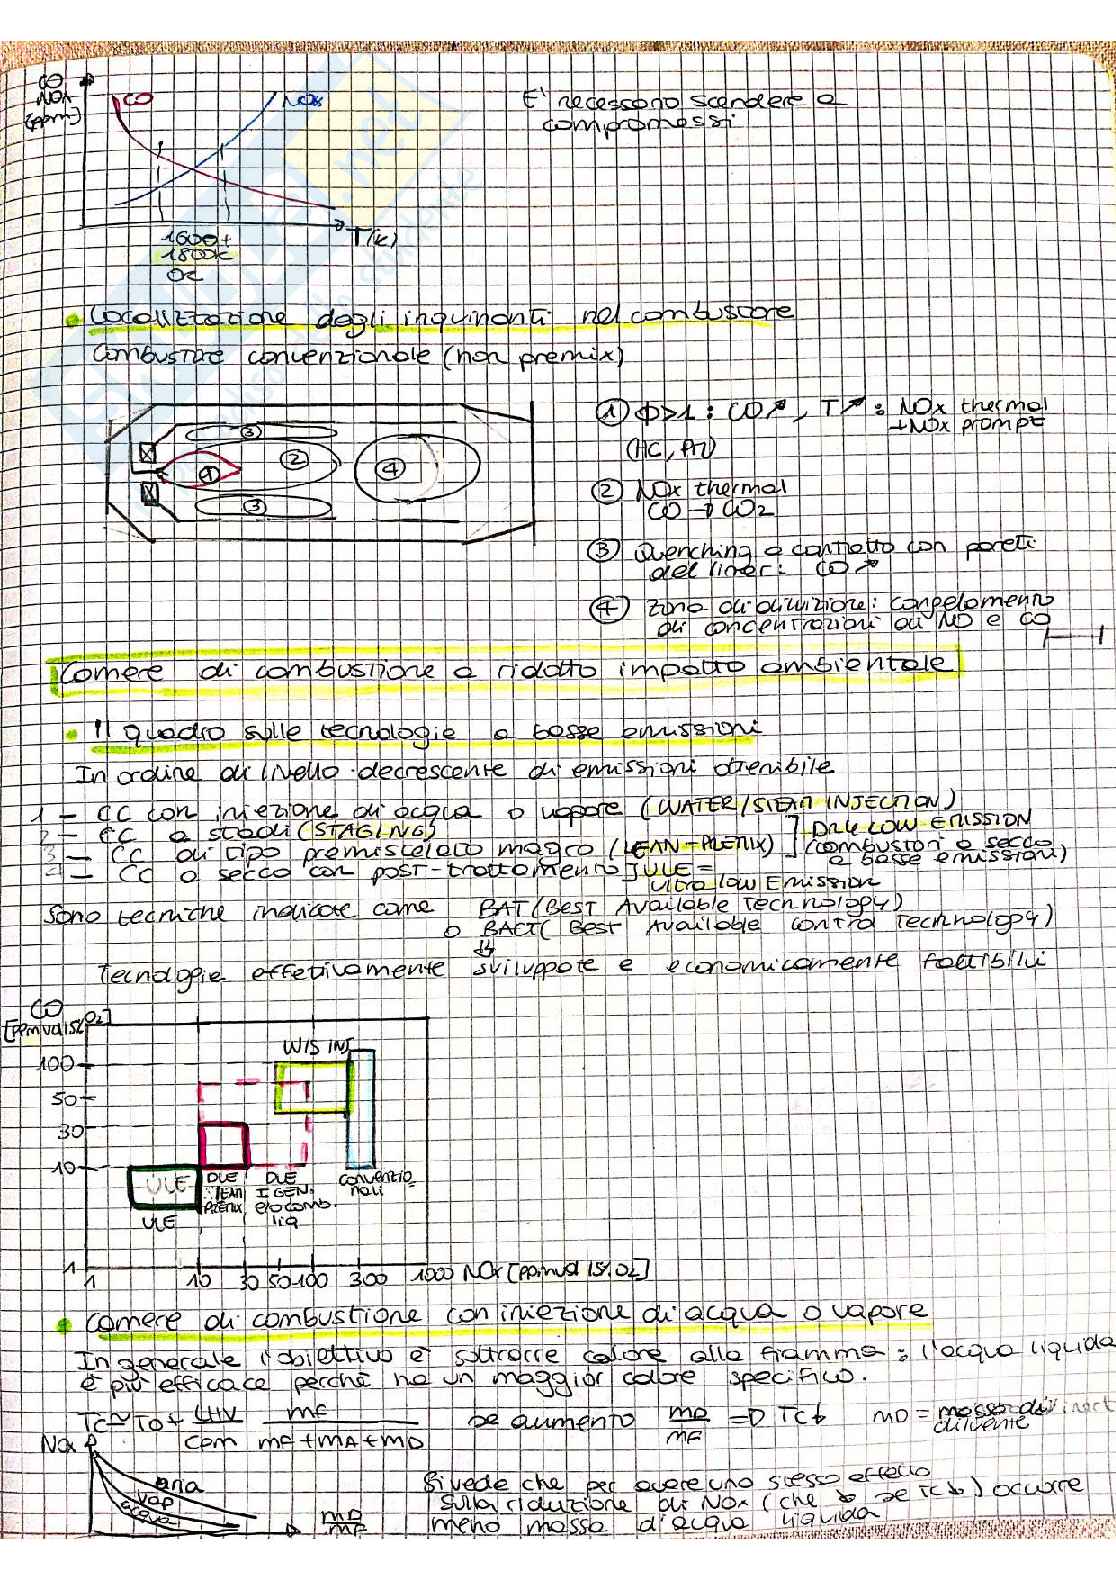 CO
NOx
(ppm)
CO
NOx
E' necessario scendere a
compromessi
T(K)
1600÷
1800K
OK
• Localizzazione degli inquinanti nel combustore
Combustore convenzionale (non premix)
3
1
2
4
3
① Φ>1 : CO↗, T↗ : NOx thermal
+NOx prompt
(HC, PM)
② NOx thermal
CO → CO2
③ Quenching a contatto con pareti
del liner: CO↗
④ zona di diluizione: congelamento
di concentrazioni di NO e CO
Camere di combustione a ridotto impatto ambientale
• Il quadro sulle tecnologie a basse emissioni
In ordine di livello decrescente di emissioni ottenibile
1 – CC con iniezione di acqua o vapore (WATER/STEAM INJECTION)
2 – CC a stadi (STAGING)
3 – CC di tipo premiscelato magro (LEAN-PREMIX)
DRY LOW EMISSION
(combustori a secco
a basse emissioni)
4 – CC a secco con post-trattamento ULE =
Ultra low Emission
Sono tecniche indicate come BAT (Best Available Technology)
o BACT (Best Available Control Technology)
⇓
Tecnologie effetivamente sviluppate e economicamente fattibili
CO
[ppmvd 15% O2]
100
50
30
10
1
W/S INJ
ULE
ULE
DLE
LEAN
PREMIX
DLE
I GEN.
e/o comb.
liq.
convenzio=
nali
1 10 30 50 100 300 1000 NOx [ppmvd 15% O2]
• Camere di combustione con iniezione di acqua o vapore
In generale l'obiettivo è sottrarre calore alla fiamma: l'acqua liquida
è più efficace perché ha un maggior calore specifico.
Tc ≃ T0 + LHV/cpm mF/(mF+mA+mD) se aumento mD/mF => Tc↓ mD = massa di inert
diluente
NOx
aria
vap
acqua
mD/mF
Si vede che per avere uno stesso effetto
sulla riduzione di NOx (che ↓ se Tc↓) occorre
meno massa d'acqua liquida